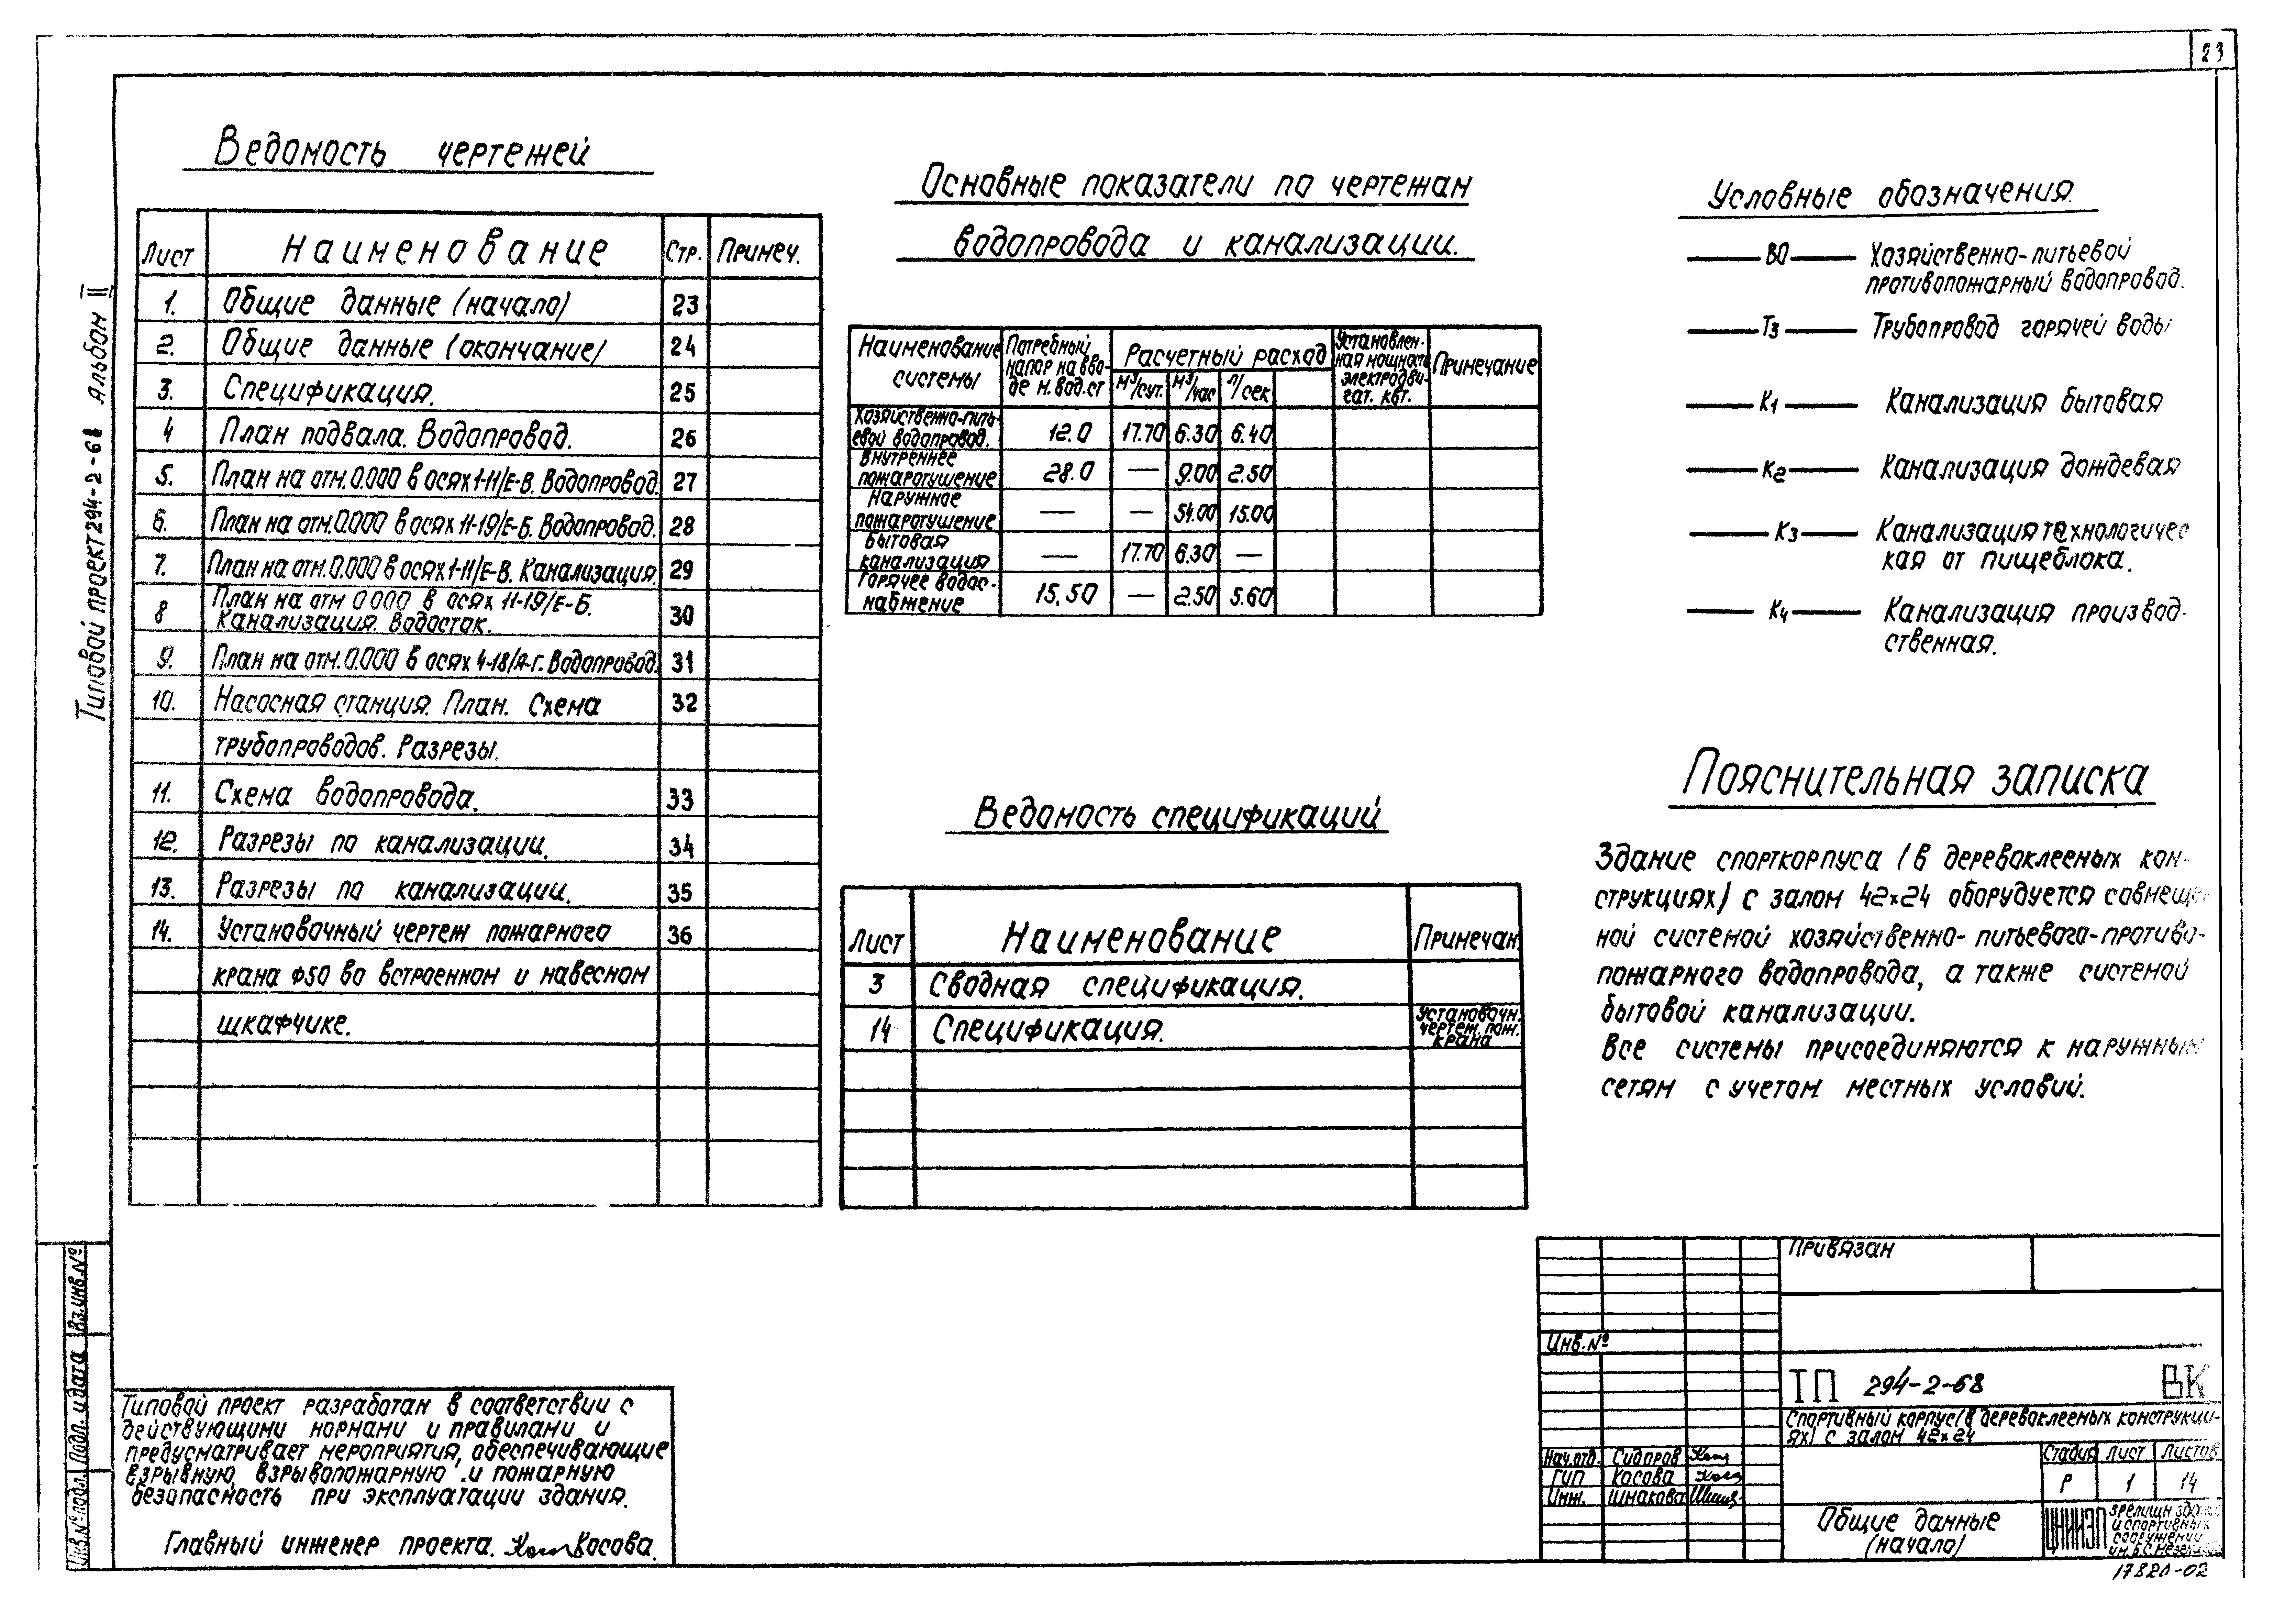 23
Типовой проект 294-2-68 Альбом III
Ведомость чертежей
Лист Наименование Стр. Примеч.
1. Общие данные (начало) 23
2. Общие данные (окончание) 24
3. Спецификация. 25
4 План подвала. Водопровод. 26
5. План на отм. 0.000 в осях 1-11/Е-В. Водопровод. 27
6. План на отм. 0.000 в осях 11-19/Е-Б. Водопровод. 28
7. План на отм. 0.000 в осях 1-11/Е-В. Канализация. 29
8 План на отм 0 000 в осях 11-19/Е-Б.
Канализация. Водосток. 30
9. План на отм. 0.000 в осях 4-18/А-Г. Водопровод. 31
10. Насосная станция. План. Схема 32
трубопроводов. Разрезы.
11. Схема водопровода. 33
12. Разрезы по канализации. 34
13. Разрезы по канализации. 35
14. Установочный чертеж пожарного 36
крана Ф50 во встроенном и навесном
шкафчике.
Основные показатели по чертежам
водопровода и канализации.
Наименование системы
Потребный напор на вводе м. вод. ст
Расчетный расход
м³/сут. м³/час л/сек
Установленная мощность электродвигат. квт.
Примечание
Хозяйственно-питьевой водопровод. 12.0 17.70 6.30 6.40
Внутреннее пожаротушение 28.0 — 9.00 2.50
Наружное пожаротушение — — 54.00 15.00
Бытовая канализация — 17.70 6.30 —
Горячее водоснабжение 15.50 — 2.50 5.60
Ведомость спецификаций
Лист Наименование Примечан.
3 Сводная спецификация.
14 Спецификация. Установочн. чертеж. пож. крана
Условные обозначения.
В0 Хозяйственно-питьевой
противопожарный водопровод.
Т3 Трубопровод горячей воды
К1 Канализация бытовая
К2 Канализация дождевая
К3 Канализация технологичес
кая от пищеблока.
К4 Канализация производ-
ственная.
Пояснительная записка
Здание спорткорпуса (в деревоклееных кон-
струкциях) с залом 42×24 оборудуется совмещен
ной системой хозяйственно-питьевого-противо-
пожарного водопровода, а также системой
бытовой канализации.
Все системы присоединяются к наружным
сетям с учетом местных условий.
Взинв.№
Подп. и дата
Инв.№ подл.
Типовой проект разработан в соответствии с
действующими нормами и правилами и
предусматривает мероприятия, обеспечивающие
взрывную, взрывопожарную и пожарную
безопасность при эксплуатации здания.
Главный инженер проекта. Косова.
Привязан
Инв.№
ТП 294-2-68 ВК
Спортивный корпус (в деревоклееных конструкци-
ях) с залом 42×24
Нач.отд. Сидоров
ГИП Косова
Инж. Шмакова
Стадия Лист Листов
Р 1 14
Общие данные
(начало)
ЦНИИЭП зрелищн здан
и спортивных
сооружений
им. Б.С. Мезенцева
17820-02